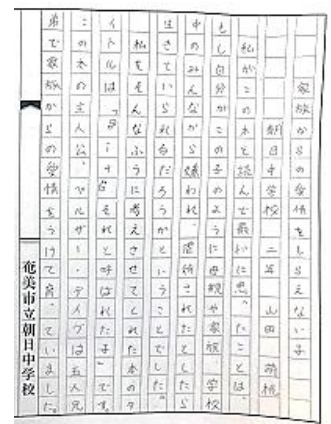 家族からの愛情をもらえない子
朝日中学校 二年 山田 萌桃
私がこの本を読んで最初に思ったことは、
もし自分がこの子のように母親や家族、学校
中のみんなから嫌われ、虐待されたとしたら
はたしていられるだろうかということでした。
私をそんなふうに考えさせてくれた本のタ
イトルは「"It"(それ)と呼ばれた子」です。
この本の主人公、デイヴは五人兄
弟で家族からの愛情をうけて育っていました。
奄美市立朝日中学校